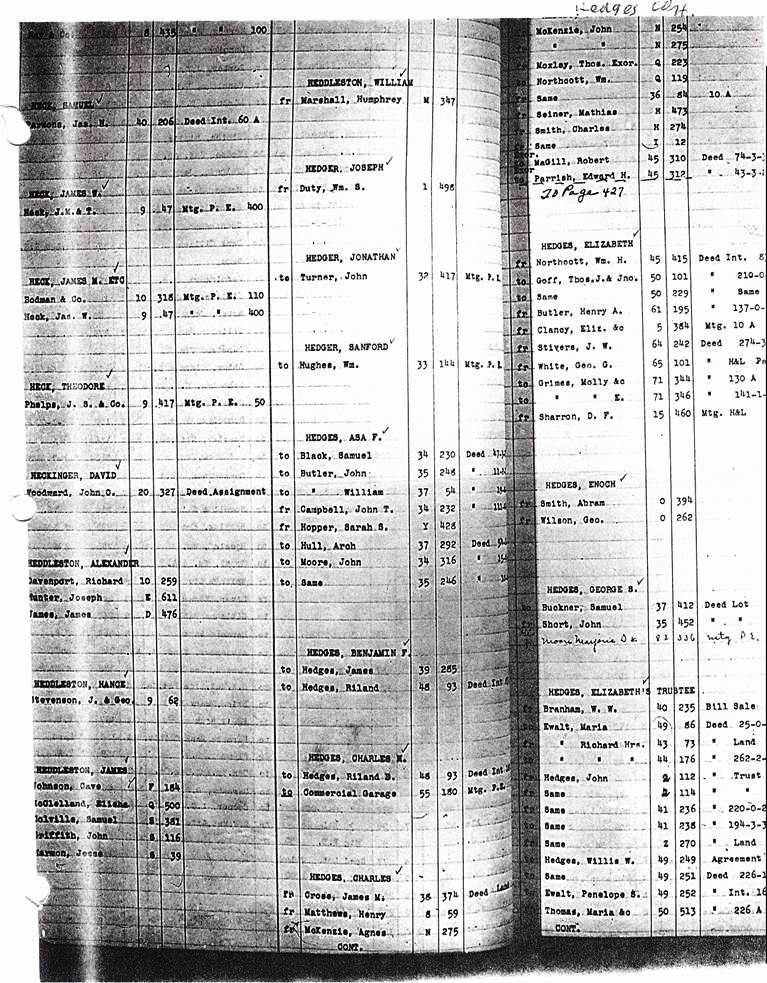 Hedges Cont.
& Co. 8 435 " " 100
HECK, SAMUEL
Parsons, Jas. H. 40 206 Deed Int. 60 A
HECK, JAMES W.
Heck, J.M.& T. 9 47 Mtg. P. E. 400
HECK, JAMES M. ETC
Bodman & Co. 10 318 Mtg. P. E. 110
Heck, Jas. W. 9 47 " " 400
HECK, THEODORE
Phelps, J. S. & Co. 9 417 Mtg. P. E. 50
HECKINGER, DAVID
Woodward, John C. 20 327 Deed Assignment
HEDDLESTON, ALEXANDER
Davenport, Richard 10 259
Hunter, Joseph E 611
James, James D 476
HEDDLESTON, HANCE
Stevenson, J. & Geo. 9 62
HEDDLESTON, JAMES
Johnson, Cave F 184
McClelland, Elisha Q 500
Melville, Samuel S 381
Griffith, John S 116
Harmon, Jesse S 39
HEDDLESTON, WILLIAM
fr Marshall, Humphrey M 347
HEDGER, JOSEPH
fr Duty, Wm. S. 1 498
HEDGER, JONATHAN
to Turner, John 32 417 Mtg. P.E
HEDGER, SANFORD
to Hughes, Wm. 33 144 Mtg. P.E
HEDGES, ASA F.
to Black, Samuel 34 230 Deed
to Butler, John 35 248 "
to " William 37 54 "
fr Campbell, John T. 34 232 "
fr Hopper, Sarah S. Y 428
to Hull, Arch 37 292 Deed
to Moore, John 34 316 "
to Same 35 246 "
HEDGES, BENJAMIN F.
to Hedges, James 39 285
to Hedges, Riland 48 93 Deed Int
HEDGES, CHARLES M.
to Hedges, Riland B. 48 93 Deed Int
to Commercial Garage 55 180 Mtg. P.E.
HEDGES, CHARLES
fr Cross, James M. 38 374 Deed Land
fr Matthews, Henry S 59
fr McKenzie, Agnes N 275
CONT.
McKenzie, John N 254
" " N 275
Moxley, Thos. Exor. Q 223
Northcott, Wm. Q 119
fr Same 36 84 10 A
Seiner, Mathias H 473
Smith, Charles H 274
Same I 12
MaGill, Robert 45 310 Deed 74-3-
Parrish, Edward H. 45 312 " 43-3-
To Page 427
HEDGES, ELIZABETH
fr Northcott, Wm. H. 45 415 Deed Int.
to Goff, Thos.J.& Jno. 50 101 " 210-0
to Same 50 229 " Same
fr Butler, Henry A. 61 195 " 137-0-
fr Clancy, Eliz. &c 5 384 Mtg. 10 A
fr Stivers, J. W. 64 242 Deed 274-3
fr White, Geo. G. 65 101 " H&L
to Grimes, Molly &c 71 344 " 130 A
to " " E. 71 346 " 141-1-
fr Sharron, D. F. 15 460 Mtg. H&L
HEDGES, ENOCH
fr Smith, Abram O 394
fr Wilson, Geo. O 262
HEDGES, GEORGE S.
Buckner, Samuel 37 412 Deed Lot
Short, John 35 452 " "
82 336 Mtg P.E.
HEDGES, ELIZABETH'S TRUSTEE
fr Branham, W. W. 40 235 Bill Sale
Ewalt, Maria 49 86 Deed 25-0-
" Richard Hrs. 43 73 " Land
fr " " " 44 176 " 262-2-
Hedges, John 2 112 " Trust
Same 2 114 " "
Same 41 236 " 220-0-2
Same 41 238 " 194-3-3
fr Same Z 270 " Land
Hedges, Willis W. 49 249 Agreement
Same 49 251 Deed 226-1
fr Ewalt, Penelope S. 49 252 " Int. 16
Thomas, Maria &c 50 513 " 226 A
CONT.